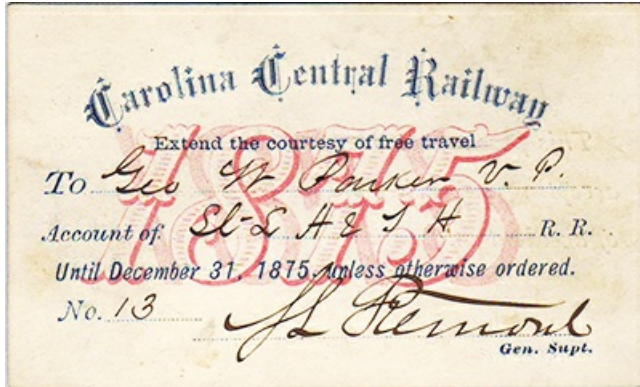 Carolina Central Railway
1875
Extend the courtesy of free travel
To Geo W Parker V. P.
Account of St L A & T H R. R.
Until December 31, 1875, unless otherwise ordered.
No. 13 S L Fremont
Gen. Supt.